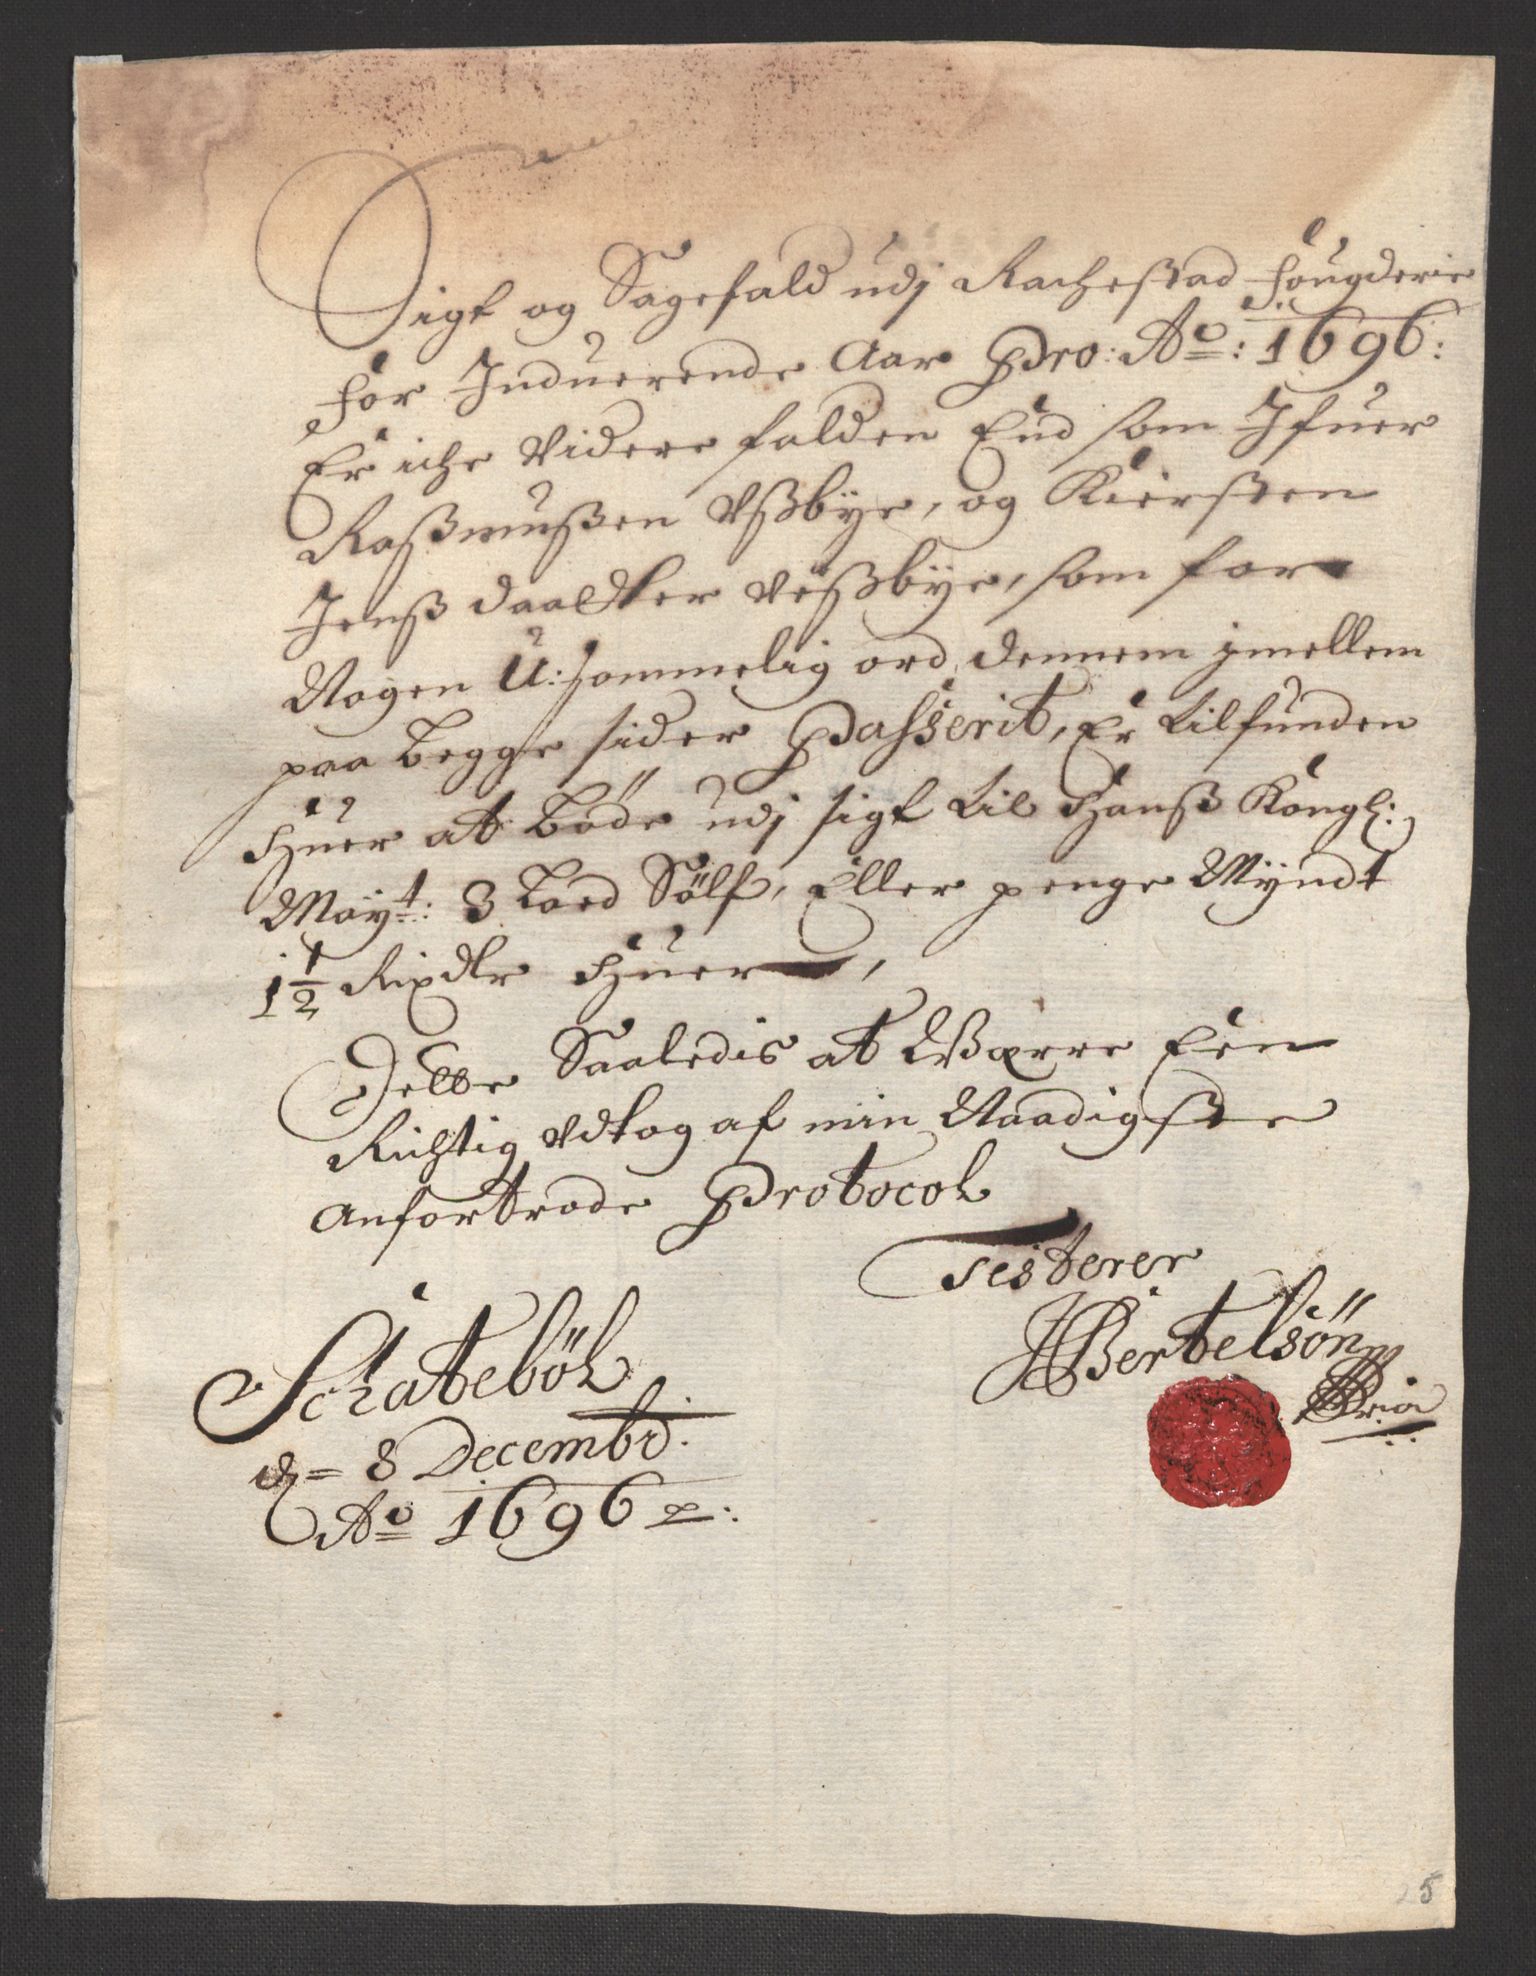 Sigt og Sagefald udj Rachestad Fougderie
for Induerende Aar Pro: Ao: 1696:
Er iche Videre falden End som Ifuer
Rassmussen Vssbÿe, og Kiersten
Jenss daatter Vessbÿe, som for
Nogen U:sommelig ord, dennem jmellem
paa begge sider Passerit, Er tilfunden
Huer at bøde udj sigt til Hanss Kongl:
Mayt: 3 Lood Sölf, Eller penge Mÿndt
1 1/2 Rixdlr Huer,
Dette Saaledis at Werre Een
Richtig Vdtog af min Naadigste
Anfortrode Protocol
Testerer
Schatebøl
d= 8 Decembr:
Ao 1696
HBertelsøn
5